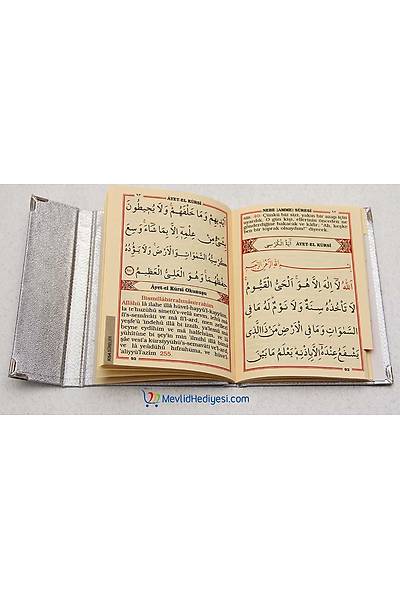 ÂYET-EL KÜRSİ
اَيْدِيهِمْ وَمَا خَلْفَهُمْ وَلَا يُحِيطُونَ
بِشَيْءٍ مِنْ عِلْمِهِ اِلَّا بِمَا شَاءَ وَسِعَ
كُرْسِيُّهُ السَّمٰوَاتِ وَالْاَرْضَ وَلَا يَؤُدُهُ
حِفْظُهُمَا وَهُوَ الْعَلِىُّ الْعَظِيمُ
Âyet-el Kürsi Okunuşu
Bismillâhirrahmânirrahîm
Allâhü lâ ilahe illâ hüvel-hayyü'l-kayyûm,
lâ te'huzühû sinetü'v-velâ nevm, lehû mâ
fi's-semâvâti ve mâ fi'l-ard, men zellezî
yeşfe'û indehû illâ bi iznih, ya'lemü mâ
beyne eydîhim ve mâ halfehüm, ve lâ
yühîtûne bi şey'in min ilmihî illâ bimâ
şâe vesi'a kürsiyyühü's-semâvâti ve'l-ard,
ve lâ yeûdühû hıfzuhümâ, ve hüvel
'aliyyü'l azîm 255.
93
NEBE (AMME) SÛRESİ
40. Çünkü biz sizi, yakın bir azap için
uyardık. O gün kişi, ellerinin önceden ne
gönderdiğine bakacak ve kâfir: "Ah, keşke
ben bir toprak olsaydım!" diyecek.
اٰيَةُ الْكُرْسِى
ÂYET-EL KÜRSİ
اَللّٰهُ لَا اِلٰهَ اِلَّا هُوَ اَلْحَىُّ الْقَيُّومُ
لَا تَأْخُذُهُ سِنَةٌ وَلَا نَوْمٌ لَهُ مَا فِى
السَّمٰوَاتِ وَمَا فِى الْاَرْضِ مَنْ ذَا الَّذِى
يَشْفَعُ عِنْدَهُ اِلَّا بِاِذْنِهِ يَعْلَمُ مَا بَيْنَ
92
MevlidHediyesi.com